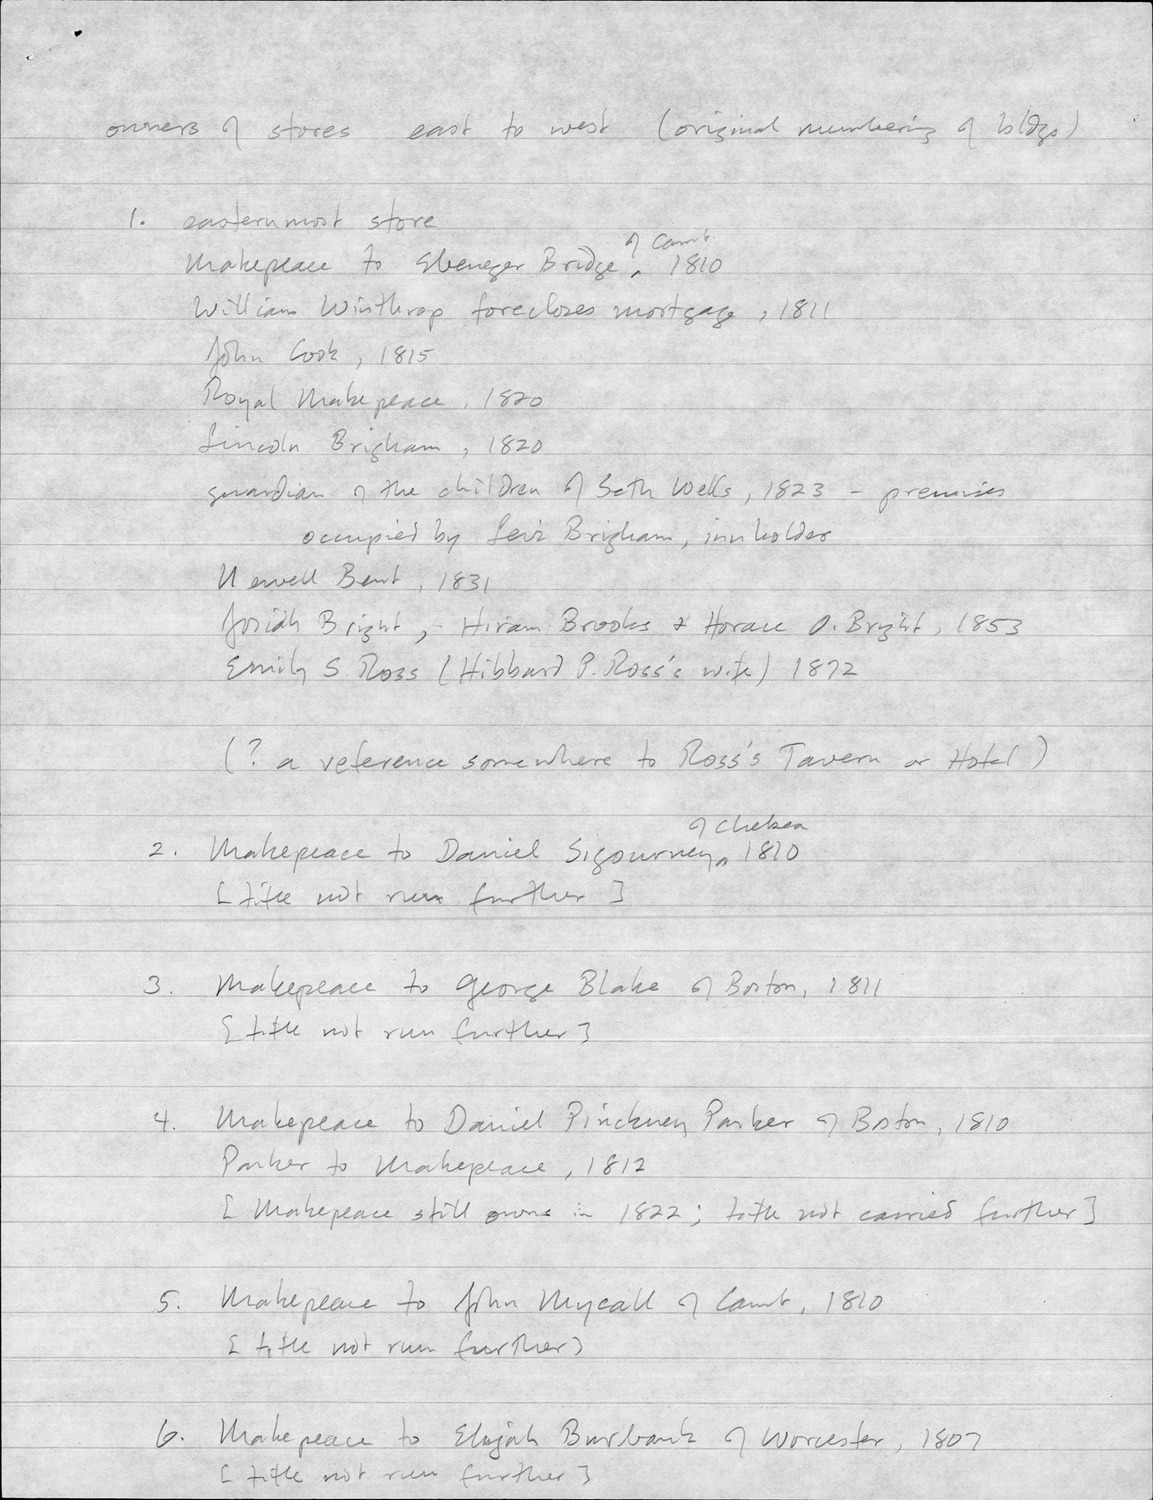 owners of stores east to west (original numbering of bldgs)
1. easternmost store
Makepeace to Ebenezer Bridge ‸ of Camb. 1810
William Winthrop forecloses mortgage, 1811
John Cook, 1815
Royal Makepeace, 1820
Lincoln Brigham, 1820
guardian of the children of Seth Wells, 1823 - premises
occupied by Levi Brigham, innholder
Newell Bent, 1831
Josiah Bright, - Hiram Brooks & Horace O. Bright, 1853
Emily S. Ross (Hibbard P. Ross's wife) 1872
(? a reference somewhere to Ross's Tavern or Hotel)
2. Makepeace to Daniel Sigourney ‸ of Chelsea 1810
[title not run further]
3. Makepeace to George Blake of Boston, 1811
[title not run further]
4. Makepeace to Daniel Pinckney Parker of Boston, 1810
Parker to Makepeace, 1812
[Makepeace still owns in 1822; title not carried further]
5. Makepeace to John Mycall of Camb, 1810
[title not run further)
6. Makepeace to Elijah Burbank of Worcester, 1807
[title not run further]